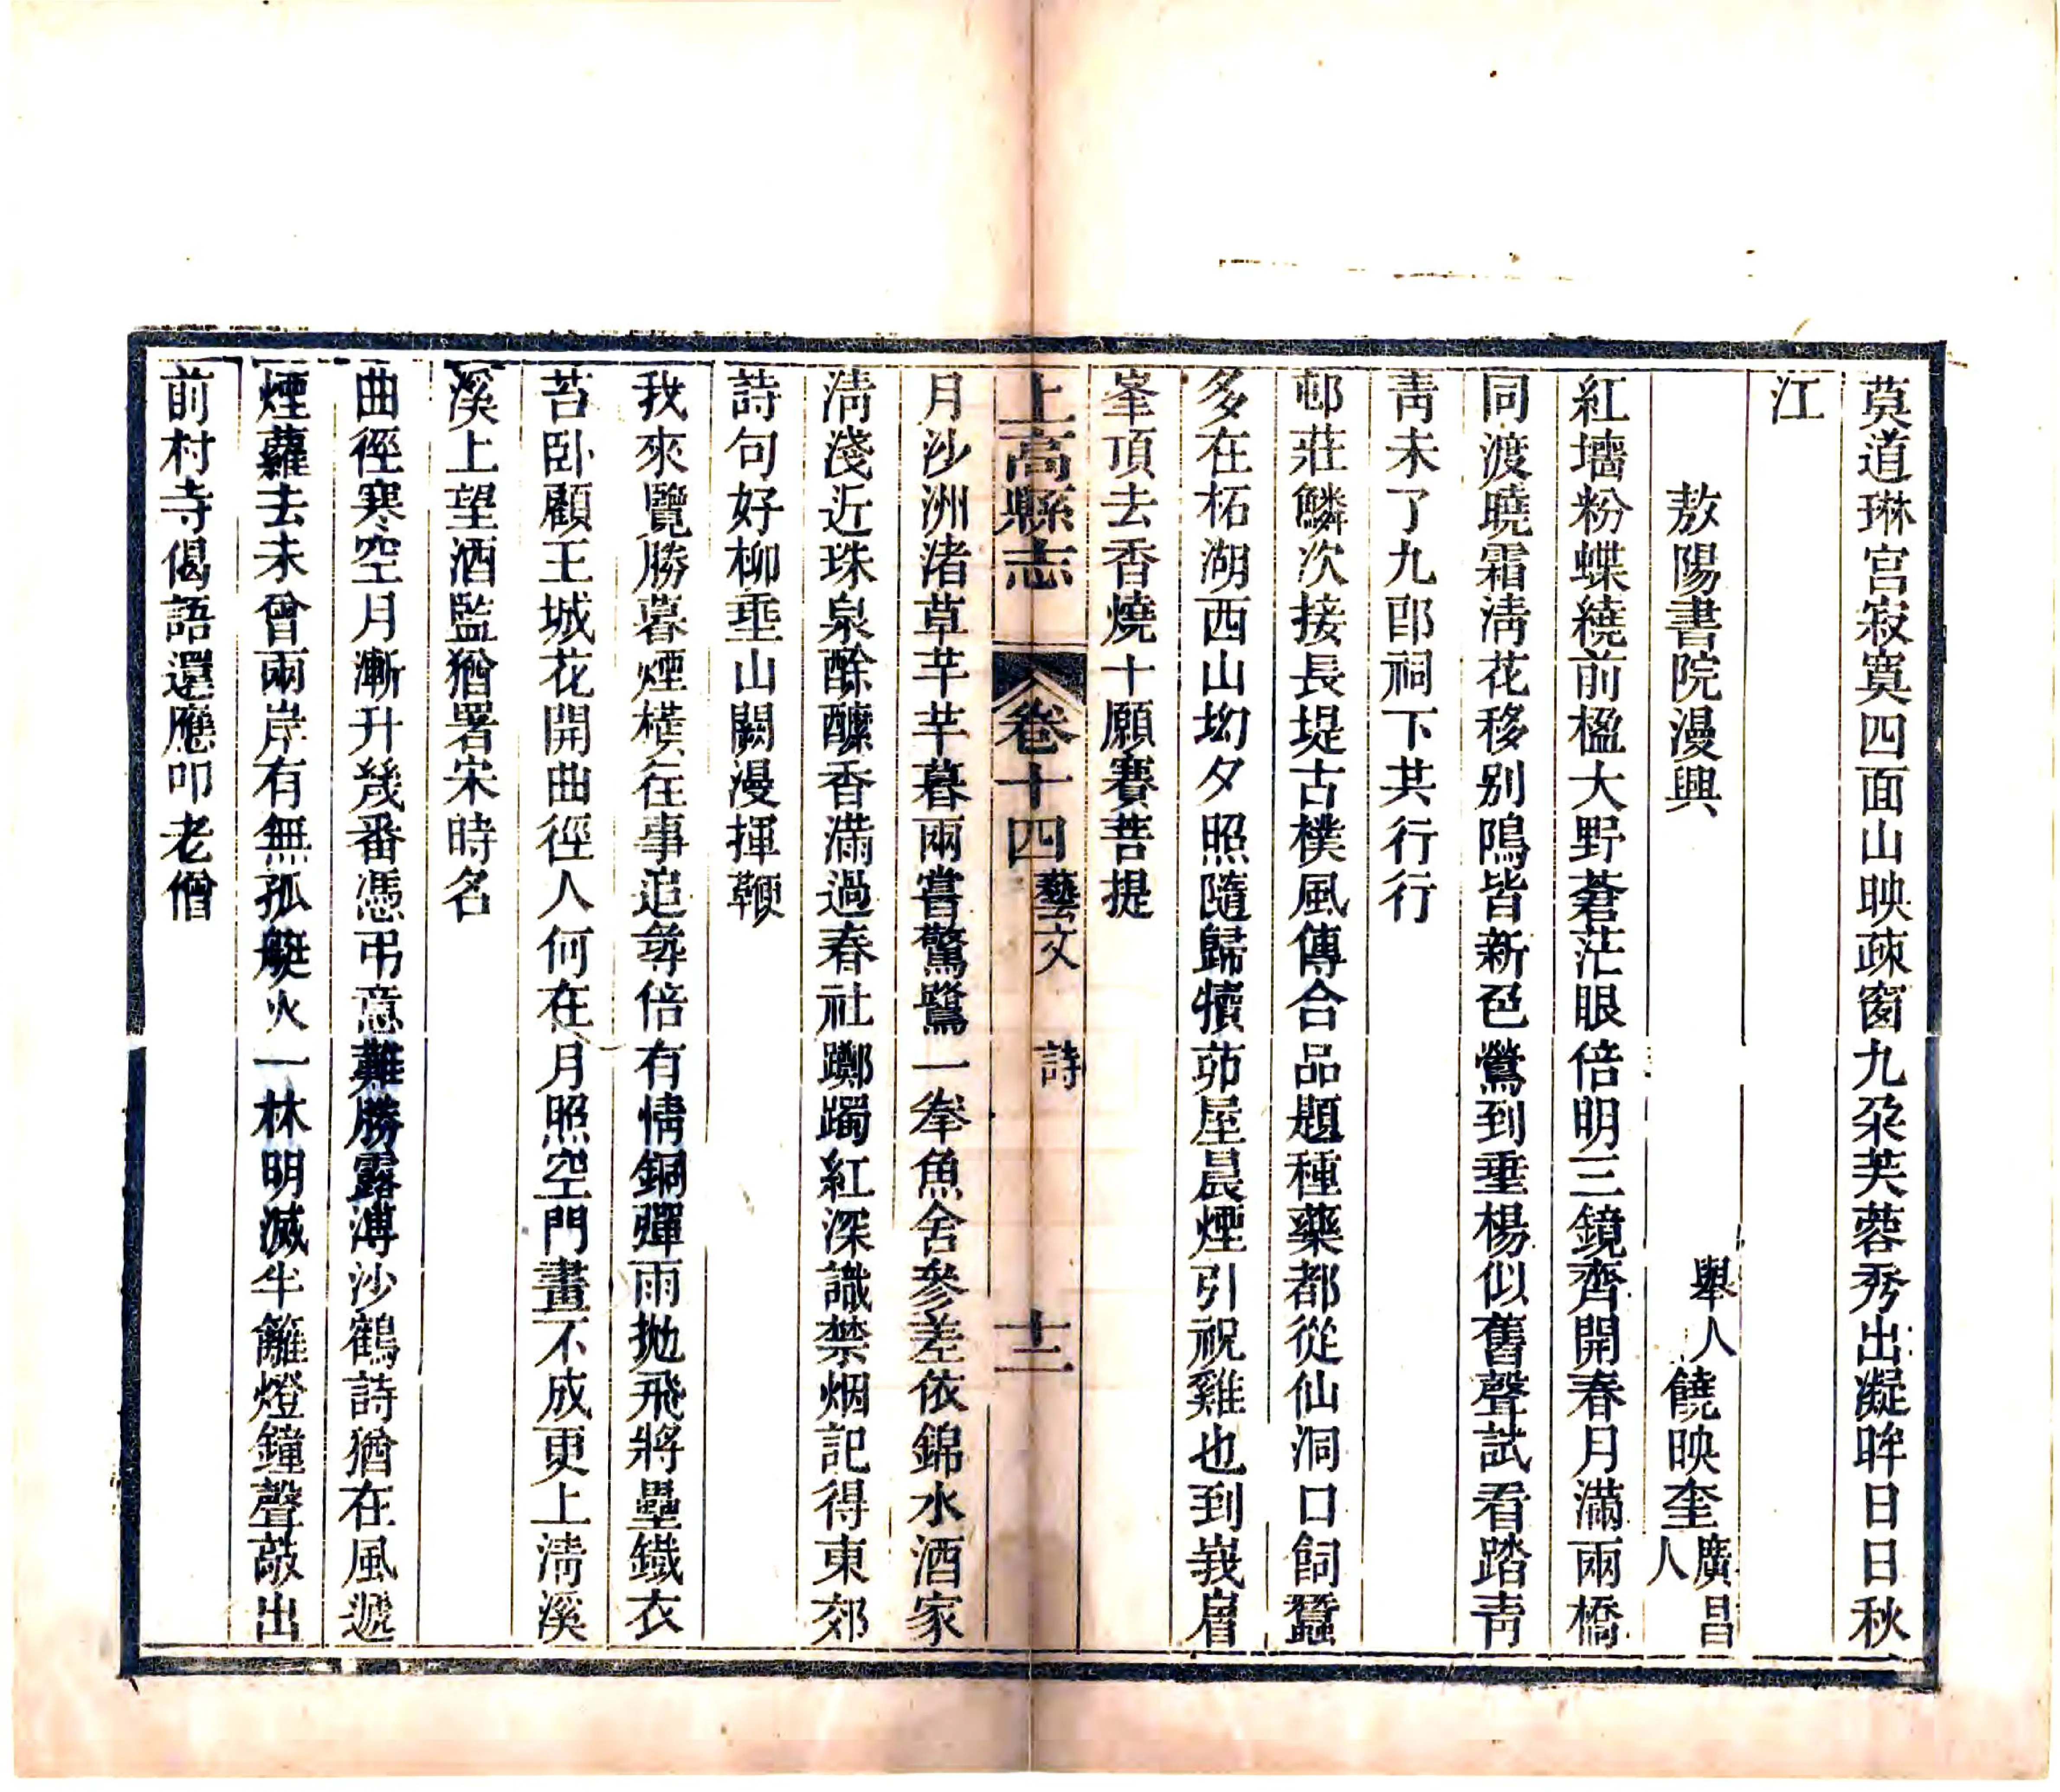 莫道琳宮寂寞四面山映疎窗九朶芙蓉秀出凝眸日日秋
江
敖陽書院漫興
舉人饒映奎廣昌人
紅墻粉蝶繞前楹大野蒼茫眼倍明三鏡齊開春月滿兩橋
同渡曉霜淸花移别隖皆新色鶯到垂楊似舊聲試看踏靑
靑未了九郎祠下其行行
邨莊鱗次接長堤古樸風傳合品題種藥都從仙洞口飼蠶
多在柘湖西山坳夕照隨歸犢茆屋晨煙引祝雞也到峩眉
峯頂去香燒十願賽菩提
上高縣志
卷十四藝文
詩
十二
月沙洲渚草芊芊暮雨嘗驚鷺一拳魚舍參差依錦水酒家
淸淺近珠泉酴醾香滿過春社躑躅紅深識禁烟記得東郊
詩句好柳埀山闕漫揮鞭
我來覽勝暮煙橫往事追尋倍有情銅彈雨拋飛將壘鐵衣
苔卧顧王城花開曲徑人何在月照空門畫不成更上淸溪
溪上望酒監猶署宋時名
曲徑寒空月漸升幾番憑弔意難勝露溥沙鶴詩猶在風遞
煙蘿去未曾兩岸有無孤艇火一林明滅半籬燈鐘聲敲出
前村寺偈語還應叩老僧